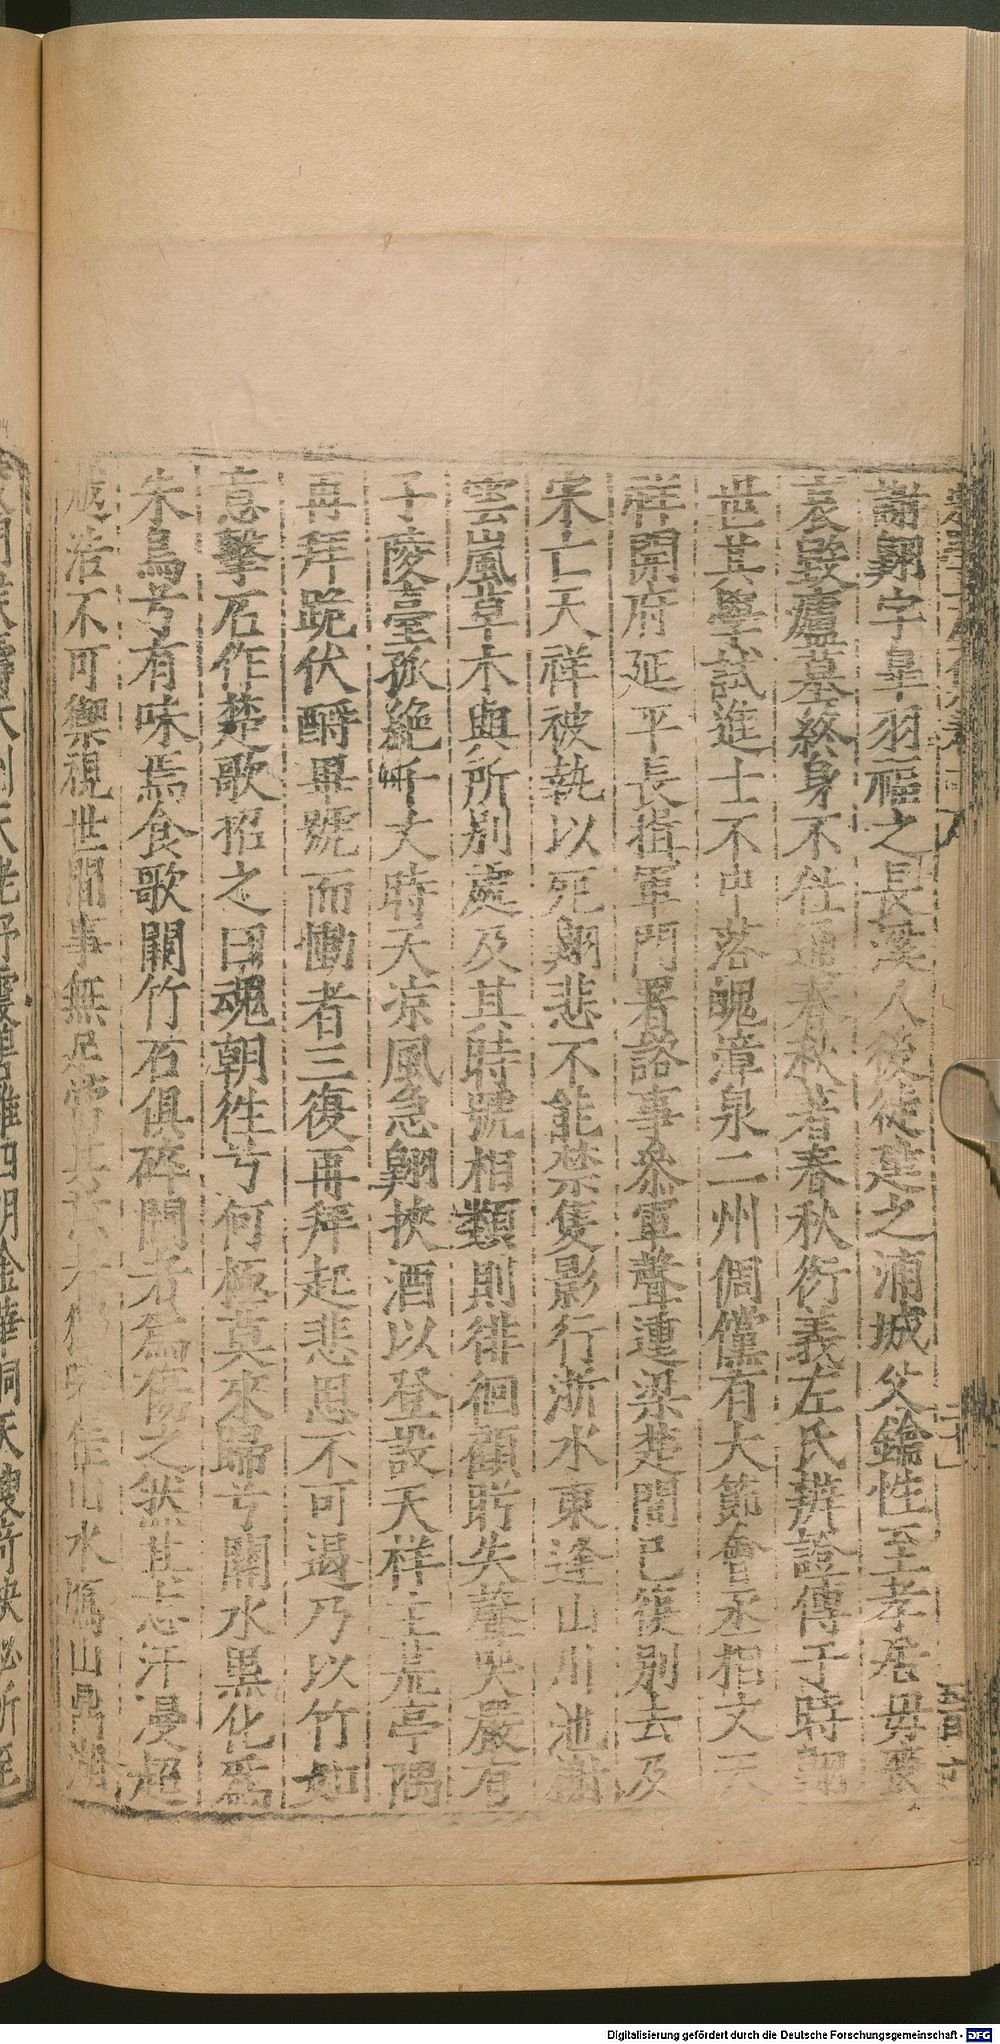 謝翺字皐羽福之長溪人後徙建之浦城父鑰性至孝居毋喪
哀毀廬墓終身不仕通春秋著春秋衍義左氏辨證傳于時翺
世其學試進士不中落魄漳泉二州倜儻有大節會丞相文天
祥開府延平長揖軍門署諮事參軍聲連梁楚間已復別去及
宋亡天祥被執以死翺悲不能禁隻影行浙水東逢山川池榭
雲嵐草木與所别處及其時號相類則徘徊顧盻失聲哭嚴有
子陵臺孤絶千丈時天凉風急翺挾酒以登設天祥主荒亭隅
再拜跪伏酹畢號而慟者三復再拜起悲思不可遏乃以竹如
意擊石作楚歌招之曰魂朝徃兮何極莫來歸兮關水黑化爲
朱鳥兮有味焉食歌闋竹石俱碎聞者爲傷之然其志汗漫超
越浩不可禦視世間事無足當其
水鴈山鼎湖
四明金華洞天
Digitalisierung gefördert durch die Deutsche Forschungsgemeinschaft - DFG